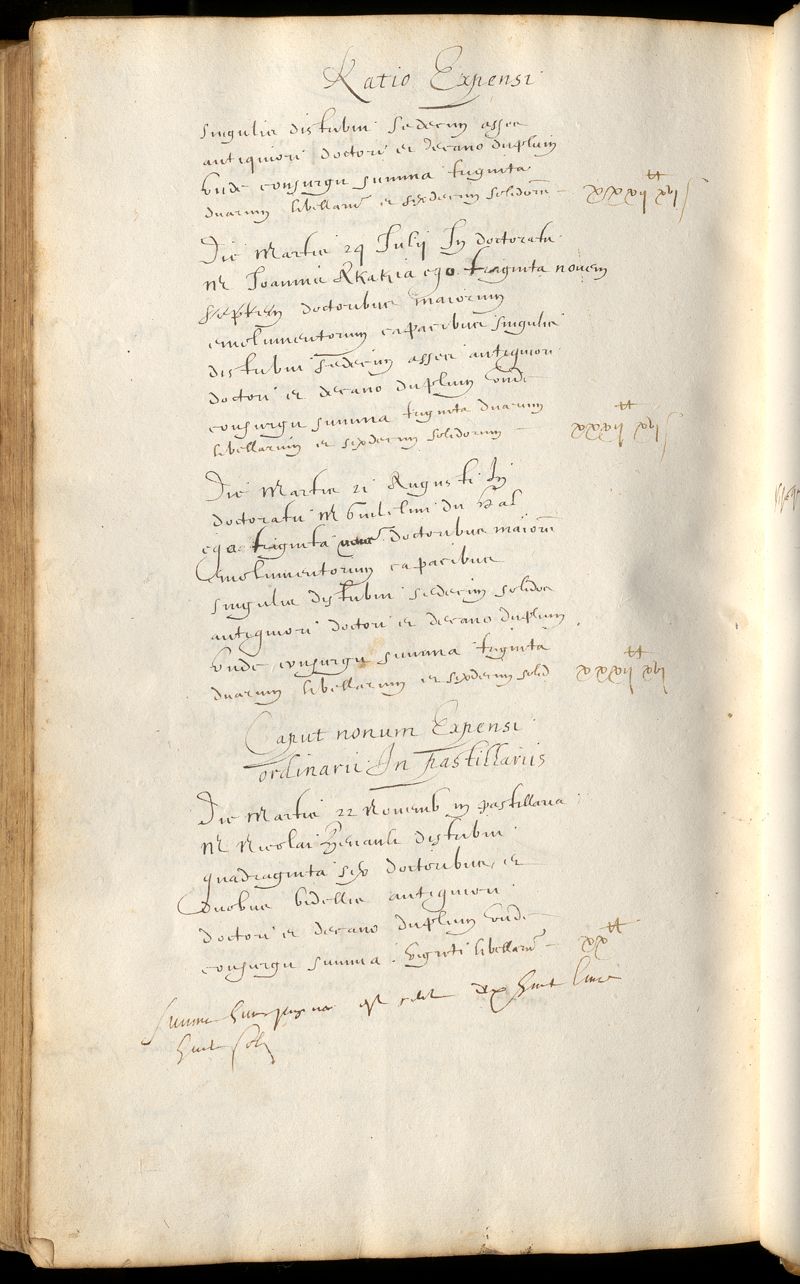 Ratio Expensi
singulis distribui sedecim asses
antiquiori doctori et decano duplum
Unde consurgit summa triginta
duarum libellarum et sexdecim solidorum – xxxii tt xvi s
Die Martis 24 Julii In doctoratu
M Joannis Akakia ego triginta novem
doctoribus maiorum
emolumentorum capacibus singulis
distribui sedecim asses antiquiori
doctori et decano duplum Unde
consurgit summa triginta duarum
libellarum et sexdecim solidorum – xxxii tt xvi s
Die Martis 21 Augusti In
doctoratu M Guilelmi du Val
ego triginta doctoribus maiorum
emolumentorum capacibus
singulis distribui sedecim solidos
antiquiori doctori et decano duplum
Unde consurgit summa triginta
duarum libellarum et sexdecim solid xxxii tt xvi
Caput nonum Expensi
ordinarii In pastillariis
Die Martis 22 Novemb in pastillaria
M Nicolai distribui
quadraginta sex doctoribus, et
duobus bidellis antiquiori
doctori et decano duplum Unde
consurgit summa viginti libellarum – xx tt
Summa huius